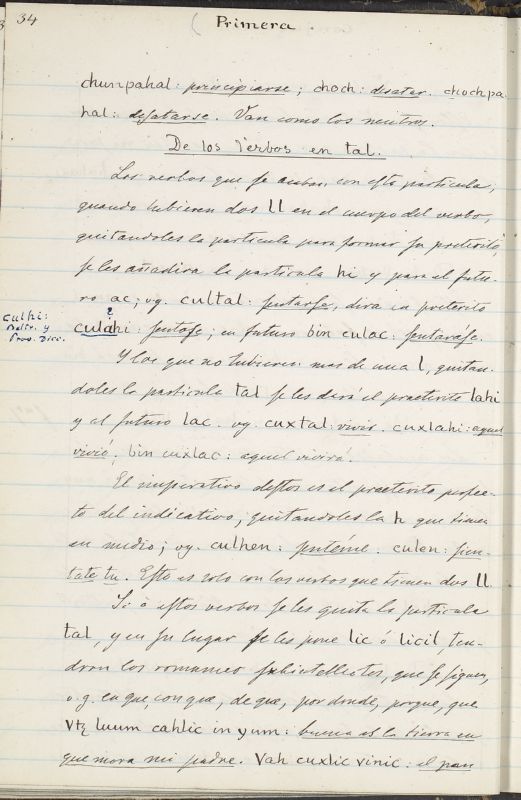 34 (Primera
chunpahal: principiarse; choch: disatar. chochpa
hal: desatarse. Van como los neutros.
De los Verbos en tal.
Los verbos que se acaban con esta particula,
quando tubieren dos ll en el cuerpo del verbo,
quitandoles la particula para formar su preterito,
se les añadira la particula hi y para el futu-
ro ac; vg. cultal: sentarse, dira in preterito
culhi:
Beltr. y
Prov. Dicc.
?
culahi: sentose; en futuro bin culac: sentaráse.
Y los que no tubieren mas de una l, quitan-
doles la particula tal se les dará el praeterito lahi
y al futuro lac. vg. cuxtal: vivir. cuxlahi: aquel
vivió, bin cuxlac: aquel vivirá.
El imperativo destos es el praeterito perfec-
to del indicativo, quitandoles la h que tienen
en medio; vg. culhen: sentéme. culen: sien-
tate tu. Esto es solo con los verbos que tienen dos ll.
Si á estos verbos se les quita la particula
tal, y en su lugar se les pone lic ó licil, ten-
dran los romances subintellectos, que se siguen,
v.g. en que, con que, de que, por donde, porque, que
Vtz luum cahlic in yum: buena es la tierra en
que mora mi padre. Vah cuxlic vinic: el pan